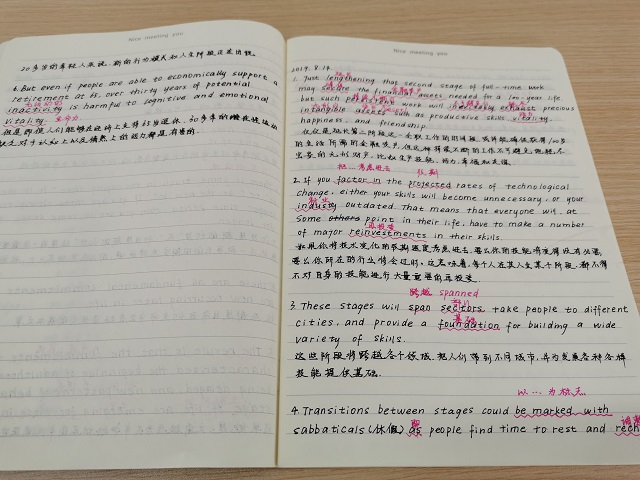 Nice meeting you
20多岁的年轻人来说，新的行为模式和人生阶段还是
6. But even if people are able to economically support a
retirement at 65, over thirty years of potential
inactivity is harmful to cognitive and emotional
vitality. 生命力
但是即使人们能够在经济上支持65岁退休，30多年的
对于认知上以及情感上的活力都是有害的。
Nice meeting you
2019. 8. 14.
1. Just lengthening that second stage of full-time work
may secure the financial assets needed for a 100-year life
but such persistent work will inevitably exhaust precious
intangible assets such as productive skills, vitality,
happiness, and friendship.
仅仅是延长第二阶段这一全职工作的时间段或许能确保获得100岁
的生活所需的金融资产，但这种持续不断的工作不可避免地耗尽
宝贵的无形资产，比如生产技能、活力、幸福和友谊。
把…考虑进去 预期
2. If you factor in the projected rates of technological
change, either your skills will become unnecessary, or your
行业
industry outdated. That means that everyone will, at
some others point in their life, have to make a number
再投资
of major reinvestments in their skills.
如果你将技术变化的预期速度考虑进去，要么你的技能将变得没有必要，
要么你所在的行业将会过时。这意味着，每个人在其人生某个阶段，都不得
不对自身的技能进行大量重要的再投资。
跨越 spanned
3. These stages will span sectors, take people to different
基础
cities, and provide a foundation for building a wide
variety of skills.
这些阶段将跨越各个领域，把人们带到不同城市，并为发展各种各样
技能提供基础.
以…为标志
4. Transitions between stages could be marked with
sabbaticals (休假) as people find time to rest and rech